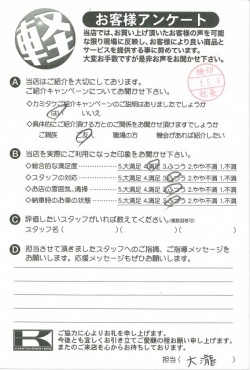 軽
お客様アンケート
当店では、お買い上げ頂いたお客様の声を可能
な限り現場に反映し、お客様により良い商品と
サービスを提供する事に努めています。
大変お手数ですが是非お声をお聞かせ下さい。
A 当店はご紹介を大切にしております。
ご紹介キャンペーンについてお聞かせ下さい。
◇カミタケご紹介キャンペーンがあるのご説明はありましたでしょうか
はい いいえ
◇具体的にご紹介頂ける方とのご関係をお聞かせ頂けますでしょうか
ご親族 職場の方 機会があれば紹介したい
B 当店を実際にご利用になった印象をお聞かせ下さい。
◇総合的な満足度 5.大満足 4.満足 3.ふつう 2.やや不満 1.不満
◇スタッフの対応 5.大満足 4.満足 3.ふつう 2.やや不満 1.不満
◇お店の雰囲気、清掃 5.大満足 4.満足 3.ふつう 2.やや不満 1.不満
◇納車時のお車の状態 5.大満足 4.満足 3.ふつう 2.やや不満 1.不満
C 評価したいスタッフがいれば教えてください。(複数回答可)
スタッフ名( )( )( )
D 担当させて頂きましたスタッフへのご指摘、ご指導メッセージを
お願いします。応援メッセージもぜひお願いします。
K
ご協力に心よりお礼を申し上げます。
今後とも宜しくお引き立てご愛顧の程お願い申し上げます。
またのご来店を心からお待ちしております。
担当( 大瀧 )